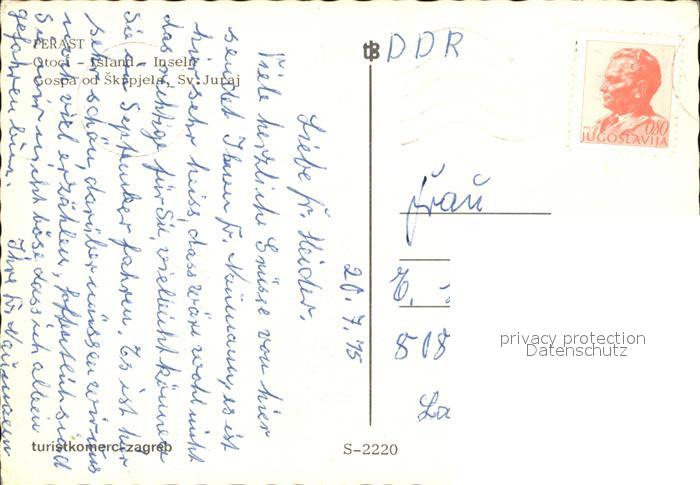 PERAST
Otoci – Island – Inseln
Gospa od Škrpjela, Sv. Juraj
DDR
0,80
JUGOSLAVIJA
20.7.75
Liebe Fr. Heider.
Viele herzliche Grüsse von hier
sendet Ihnen Fr. Naumann, es ist
hier sehr heiss, dass wäre wohl nicht
das richtige für Sie, vielleicht können
Sie im September fahren. Es ist hier
sehr schön, darüber müssen wir uns
noch viel erzählen, hoffentlich sind
Sie mir nicht böse, dass ich allein
gefahren bin.
Ihre Fr. Naumann
Frau
508
La
privacy protection
Datenschutz
turistkomerc-zagreb
S-2220